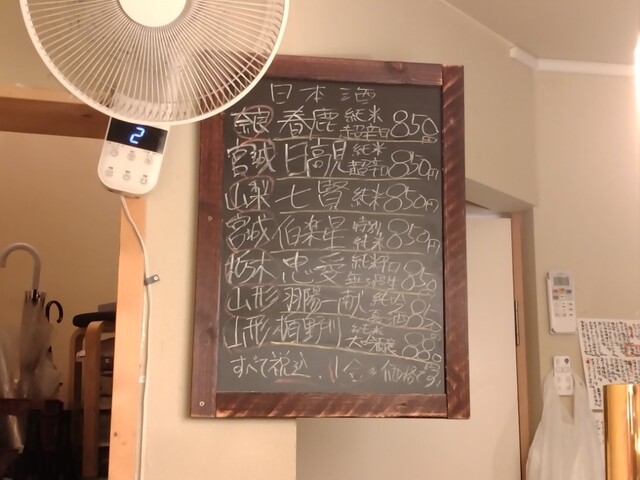 2
日本酒
奈良 春鹿 純米 超辛口 850円
宮城 日高見 純米 超辛口 850円
山梨 七賢 純米 850円
宮城 伯楽星 特別 純米 850円
栃木 忠愛 純米 850
山形 羽陽一献 純吟
山形 楯野川 純米 大吟醸 880
すべて税込 価格です